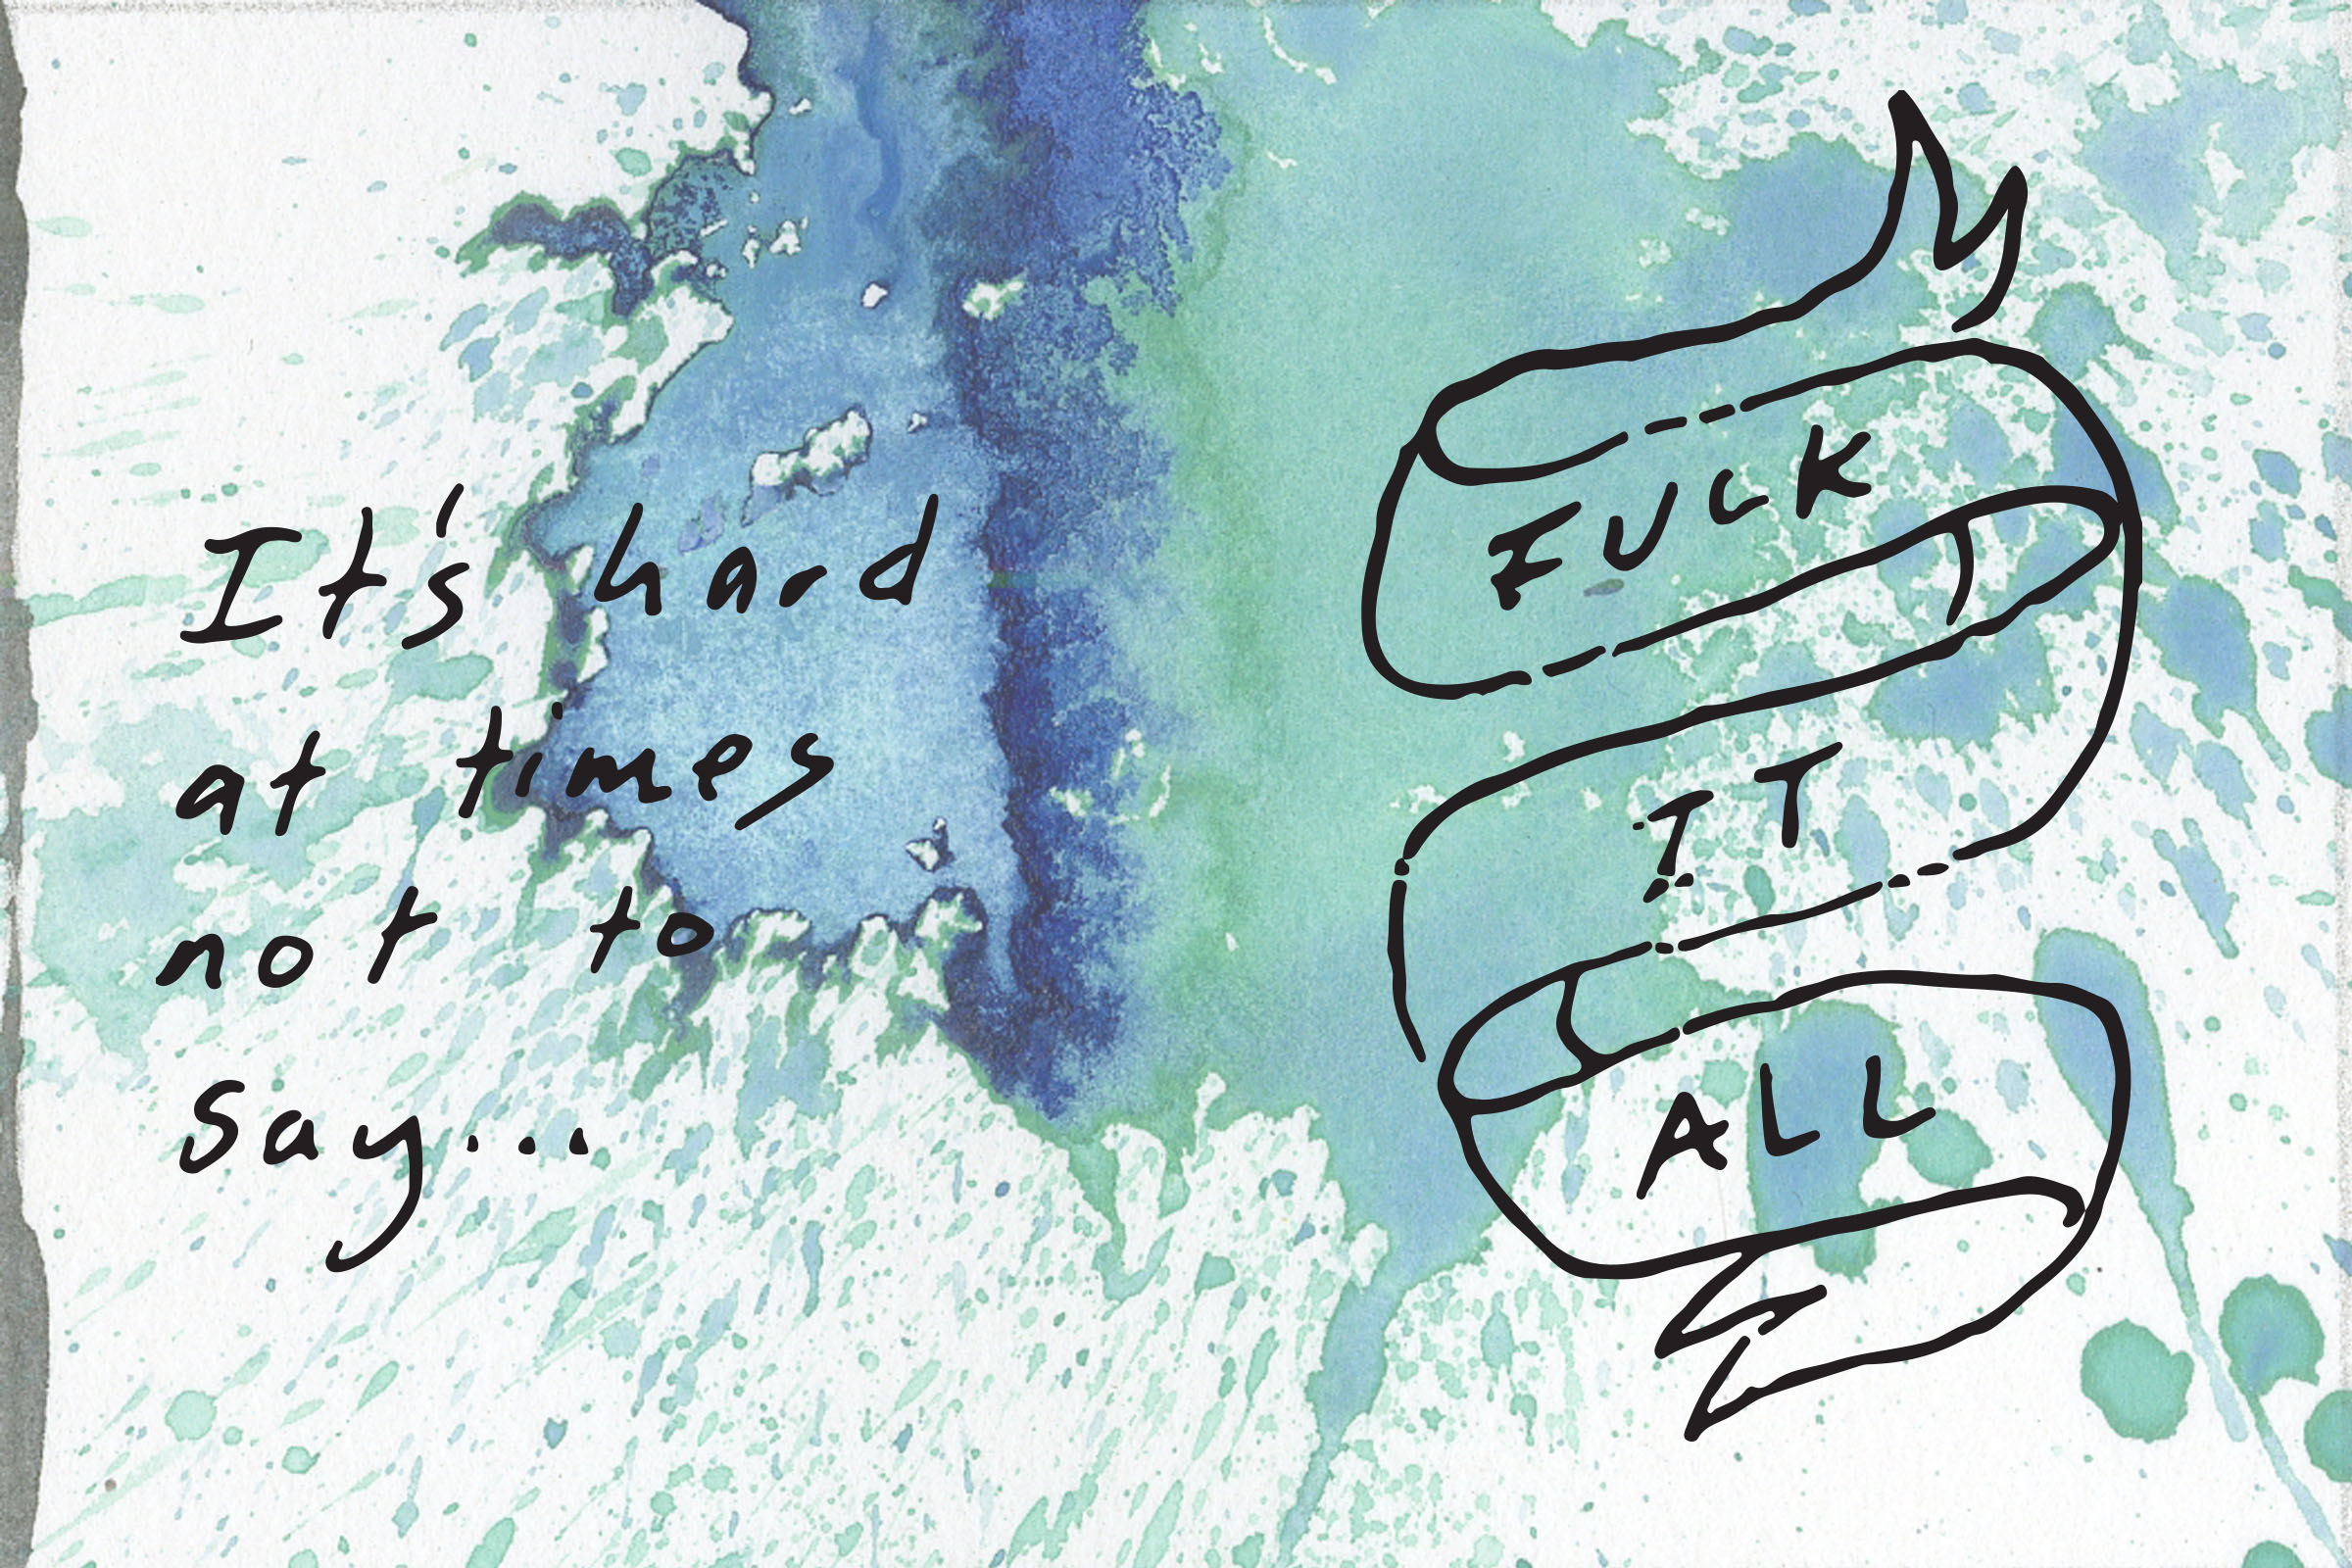 It's hard
at times
not to
say...
FUCK
IT
ALL